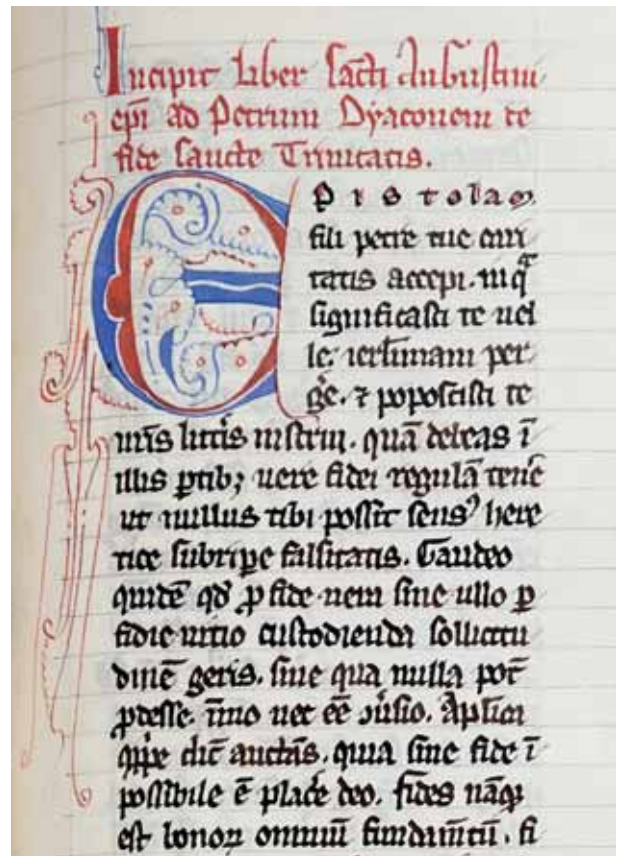 Incipit liber sc̄ti Augustini
ep̄i ad Petrum Dyaconem de
fide sancte Trinitatis.
Epistolam
fili petre tue cari
tatis accepi. in qͣ
significasti te uel
le; ierl̄imam per
ge͛. ⁊ poposcisti te
nr̄is litt͛is instrui. quā deleas ī
illis ꝑtib; uere fidei regulā tene͛
ut nullus tibi possit sensꝰ here
tice subripe͛ falsitatis. Gaudeo
quidē qd̛ ꝓ fide uera sine ullo ꝑ
fidie uitio custodienda sollicitu
dinē geris. sine qua nulla pot̄
ꝓdesse. īmo nec eē ꝯuersio. Apl̄ica
qͥppe dic̄ auct̄as. quia sine fide ī
possibile ē place͛ deo. fides nāqꝫ
est bonoꝝ omniū fundam̄tū. fi